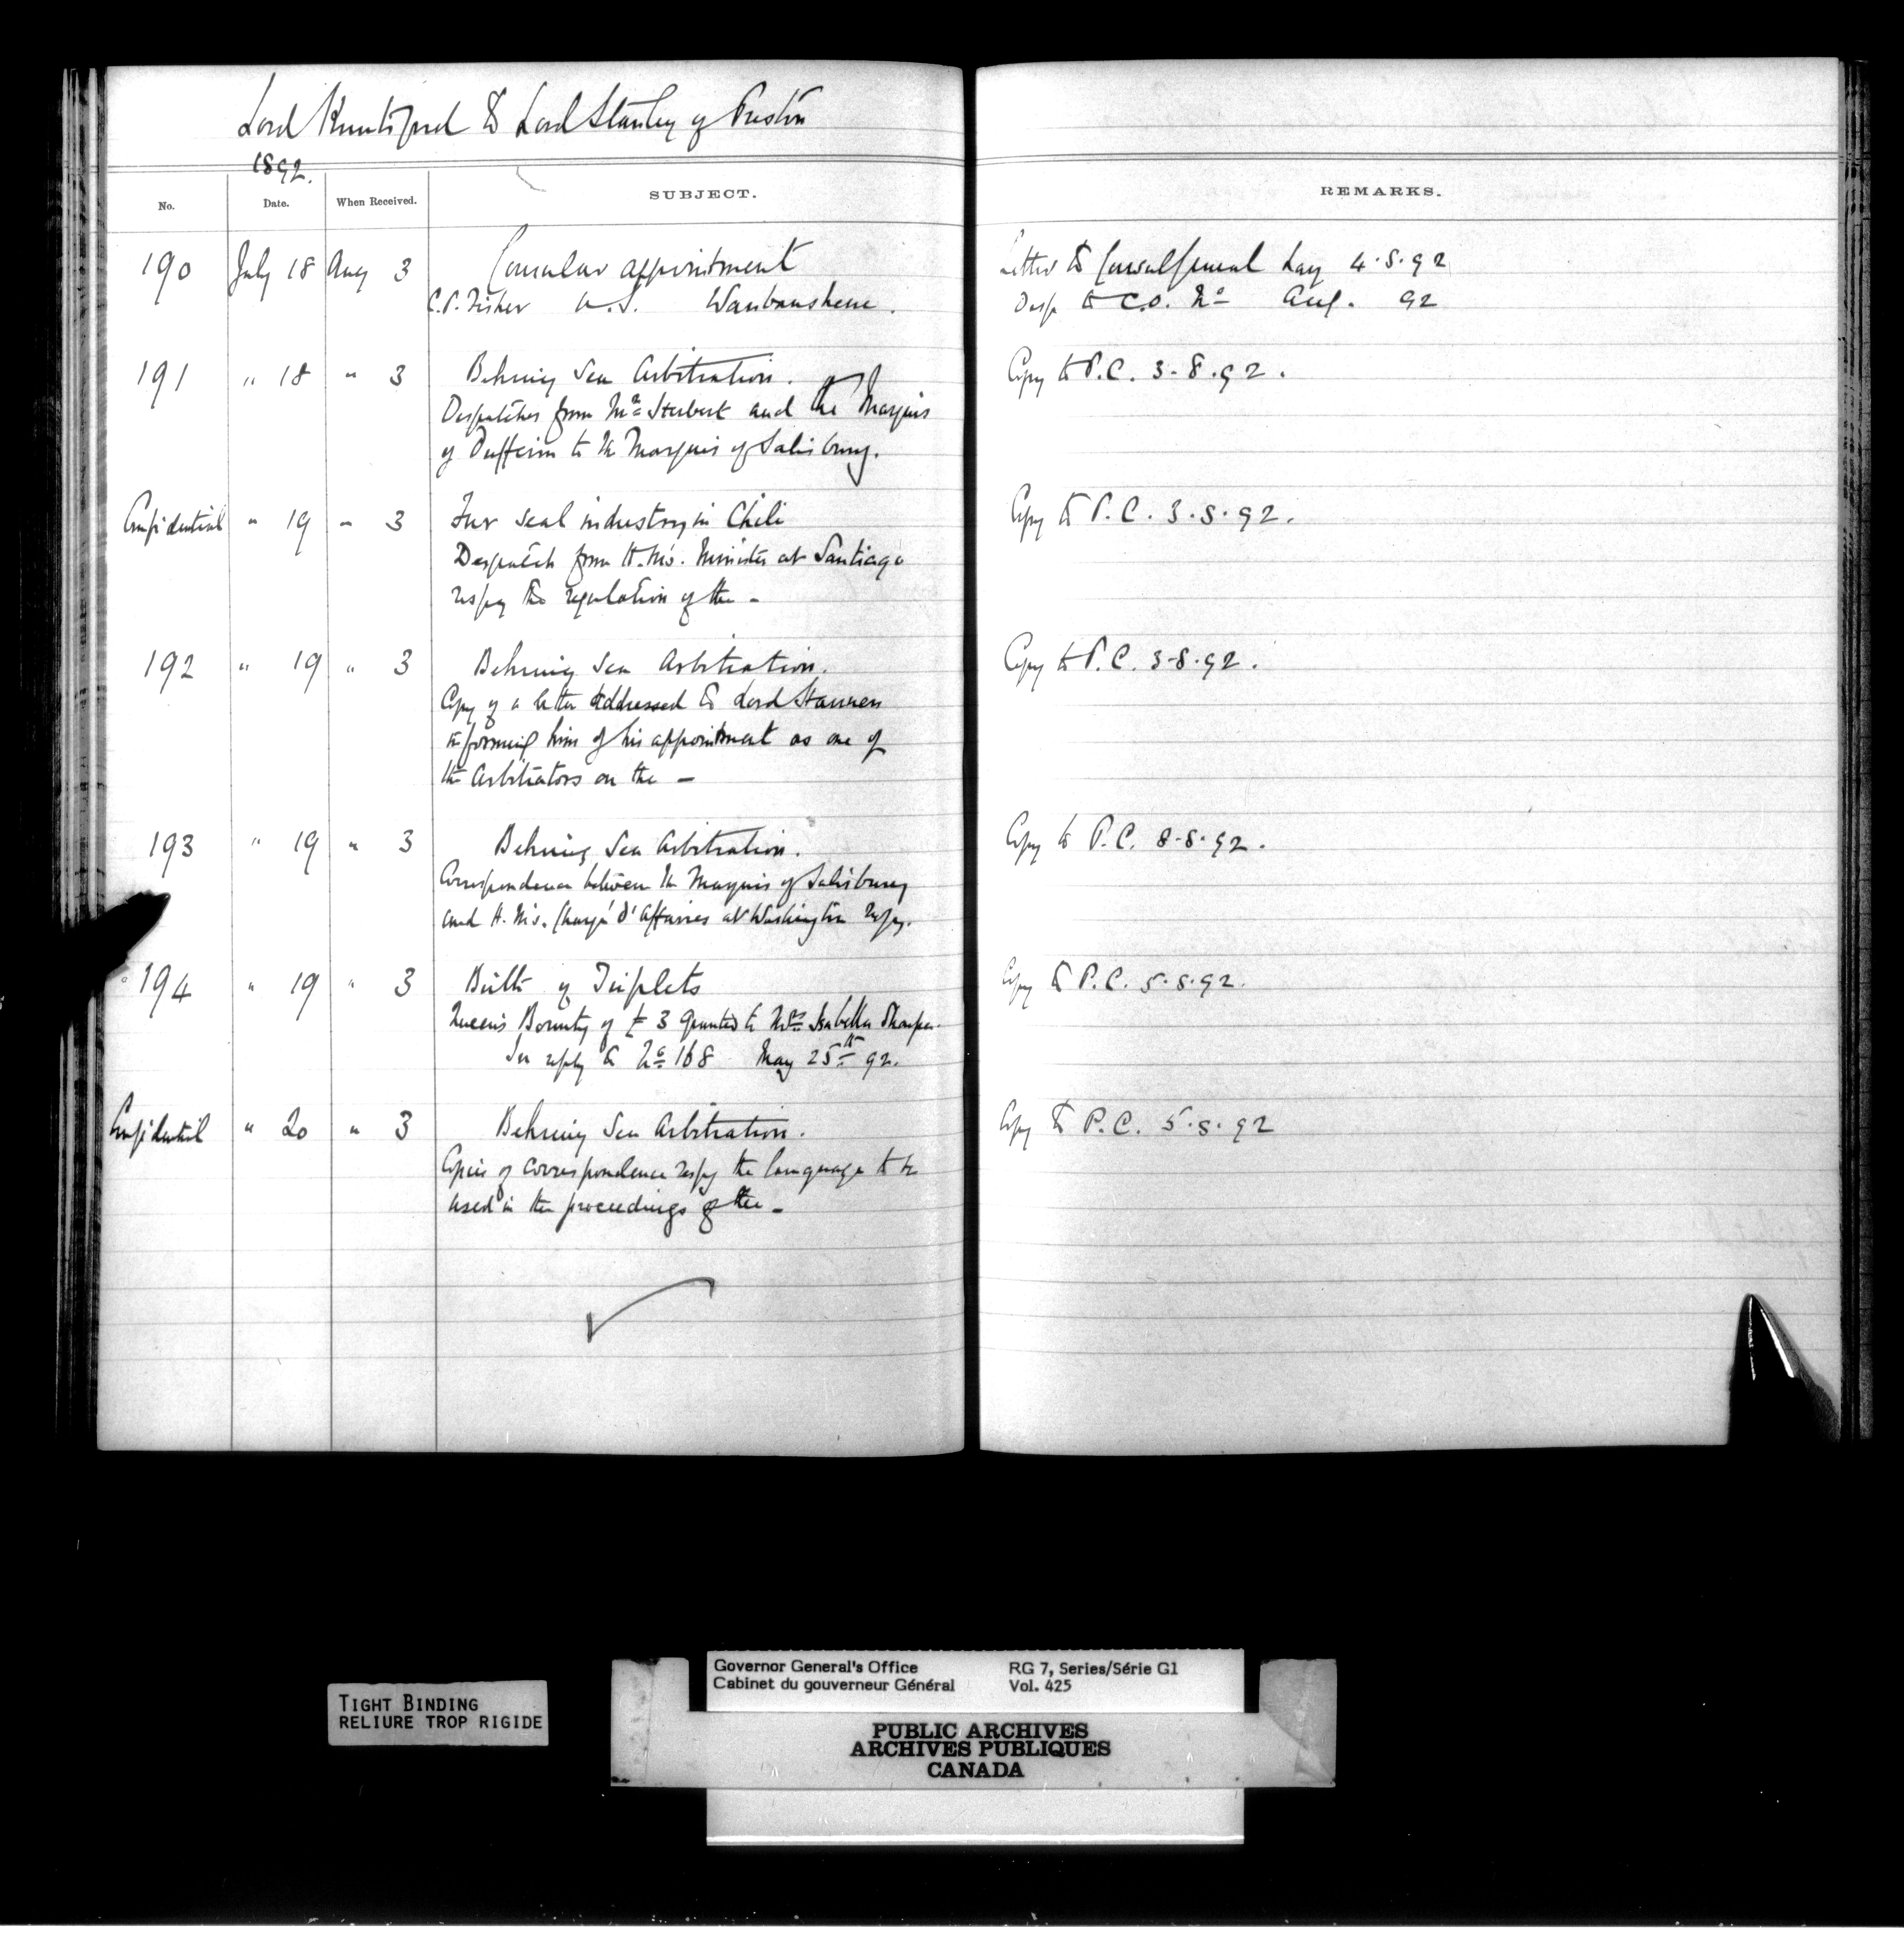 Lord Knutsford to Lord Stanley of Preston
1892.
No. Date. When Received. SUBJECT. REMARKS.
190 July 18 Aug 3 Consular appointment Letter to Consul General Lay 4.8.92
C.P. Fisher U.S. Waubaushene. Desp to C.O. No Aug. 92
191 " 18 " 3 Behring Sea Arbitration. Copy to P.C. 3-8.92.
Despatches from Mr Herbert and the Marquis
of Dufferin to the Marquis of Salisbury.
Confidential " 19 " 3 Fur seal industry in Chili Copy to P.C. 3.8.92.
Despatch from H.M's. Minister at Santiago
respg the regulation of the -
192 " 19 " 3 Behring Sea Arbitration. Copy to P.C. 3-8.92.
Copy of a letter addressed to Lord Hannen
informing him of his appointment as one of
the Arbitrators on the -
193 " 19 " 3 Behring Sea Arbitration. Copy to P.C. 8-8.92.
Correspondence between the Marquis of Salisbury
and H.M's. Chargé d'Affaires at Washington respg.
194 " 19 " 3 Birth of Triplets Copy to P.C. 5.8.92.
Queen's Bounty of £3 granted to Mrs Isabella
In reply to No 168 May 25th 92.
Confidential " 20 " 3 Behring Sea Arbitration. Copy to P.C. 5.8.92
Copies of correspondence respg the language to be
used in the proceedings of the -
TIGHT BINDING
RELIURE TROP RIGIDE
Governor General's Office RG 7, Series/Série G1
Cabinet du gouverneur Général Vol. 425
PUBLIC ARCHIVES
ARCHIVES PUBLIQUES
CANADA